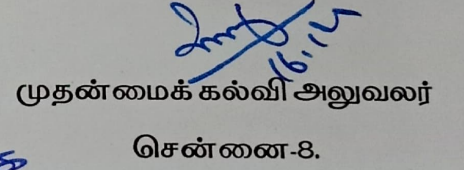 முதன்மைக் கல்வி அலுவலர்
சென்னை-8.